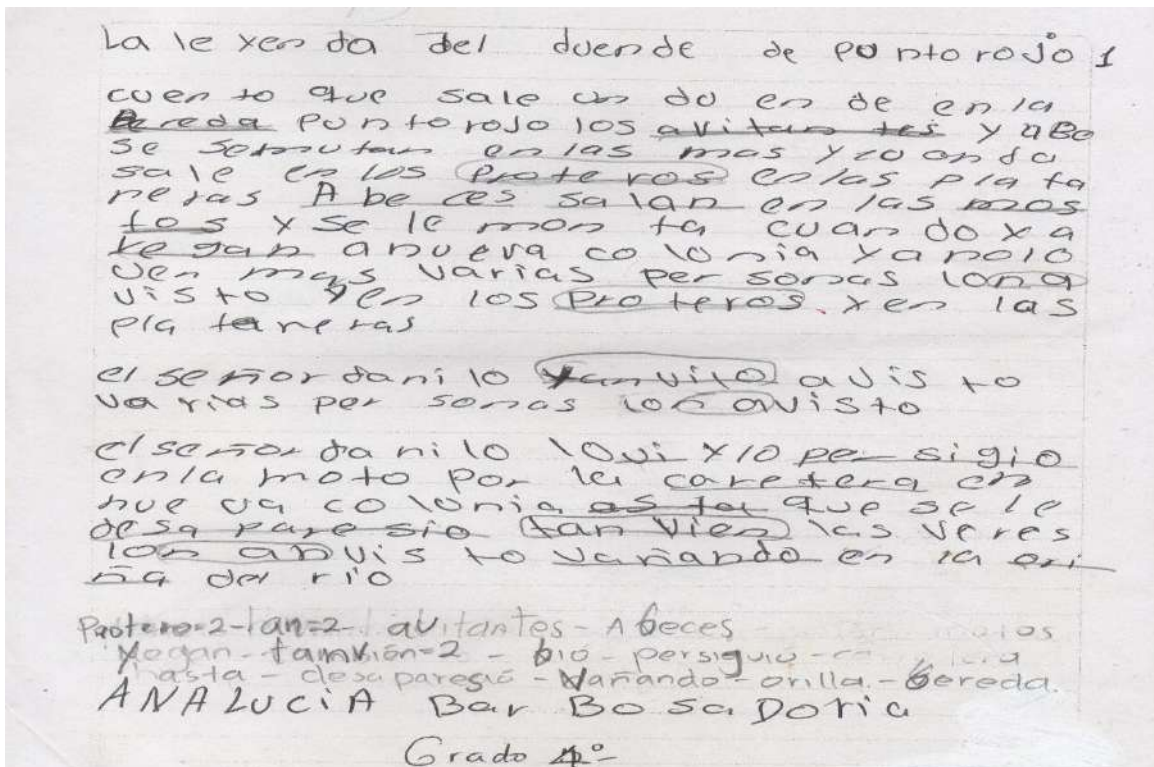 La le yen da del duende de puntorojo 1
cuen to que sale un du en de en la
Bereda puntorojo los avitan tes y aBe
se en las mas y cuan do
sale en los Proteros en las pla ta
neras A be ces salan en las mos
tos y se le mon ta cuan do ya
yegan anueva co lonia yanolo
ven mas varias per sonas lona
visto yen los proteros yen las
pla taneras
el señor dani lo tanvito avisto
varias per sonas lon avisto
el señor da ni lo lovi ylo per sigio
enla moto por la caretera en
nue va co lonia as ta que se le
desa pare sio tan vien las veres
lon anvis to vañando en la ori
ña del rio
Protero=2-lan=2- avitantes - A beces - motos
yegan - tamvién=2 - bió - persiguió -
hasta - desaparesió - vañando - orilla - bereda.
ANALUCiA Bar Bosa Doria
Grado 4°